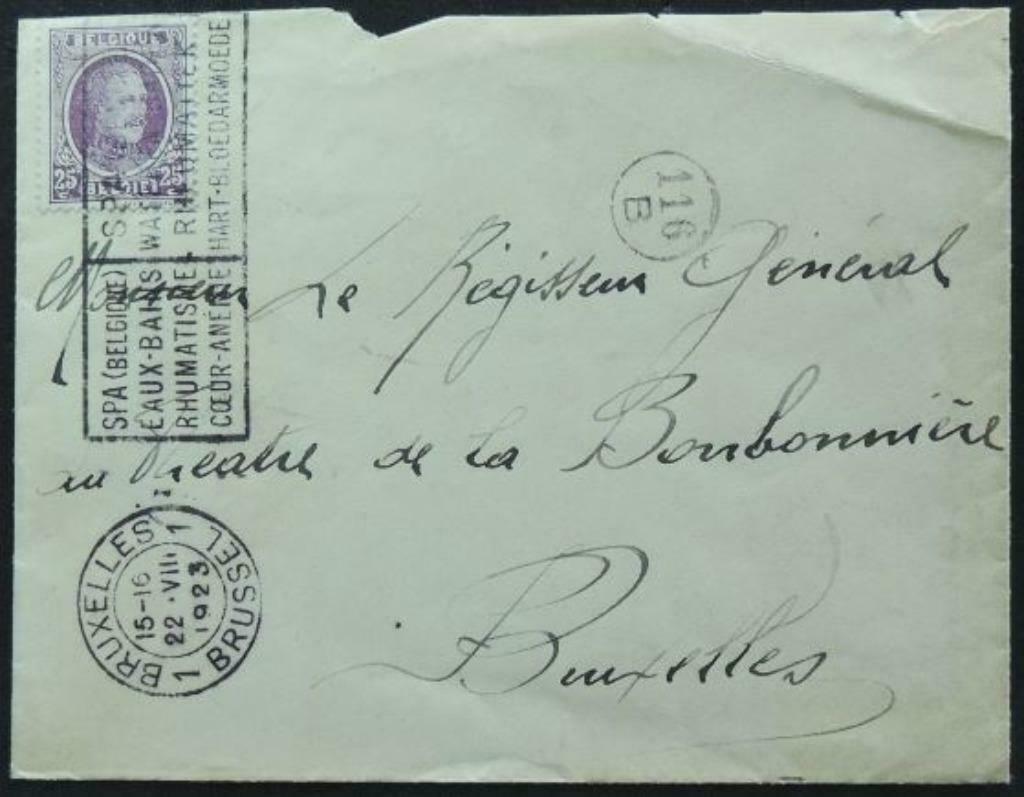 BELGIQUE
25 25
BELGIË
SPA (BELGIQUE)
EAUX-BAINS WA
RHUMATISME. RHEUMATIEK
CŒUR-ANÉMIE HART-BLOEDARMOEDE
116
B
Monsieur Le Régisseur Général
au Théatre de la Bonbonnière
Bruxelles
BRUXELLES 1
15-16
22·VIII
1923
1 BRUSSEL